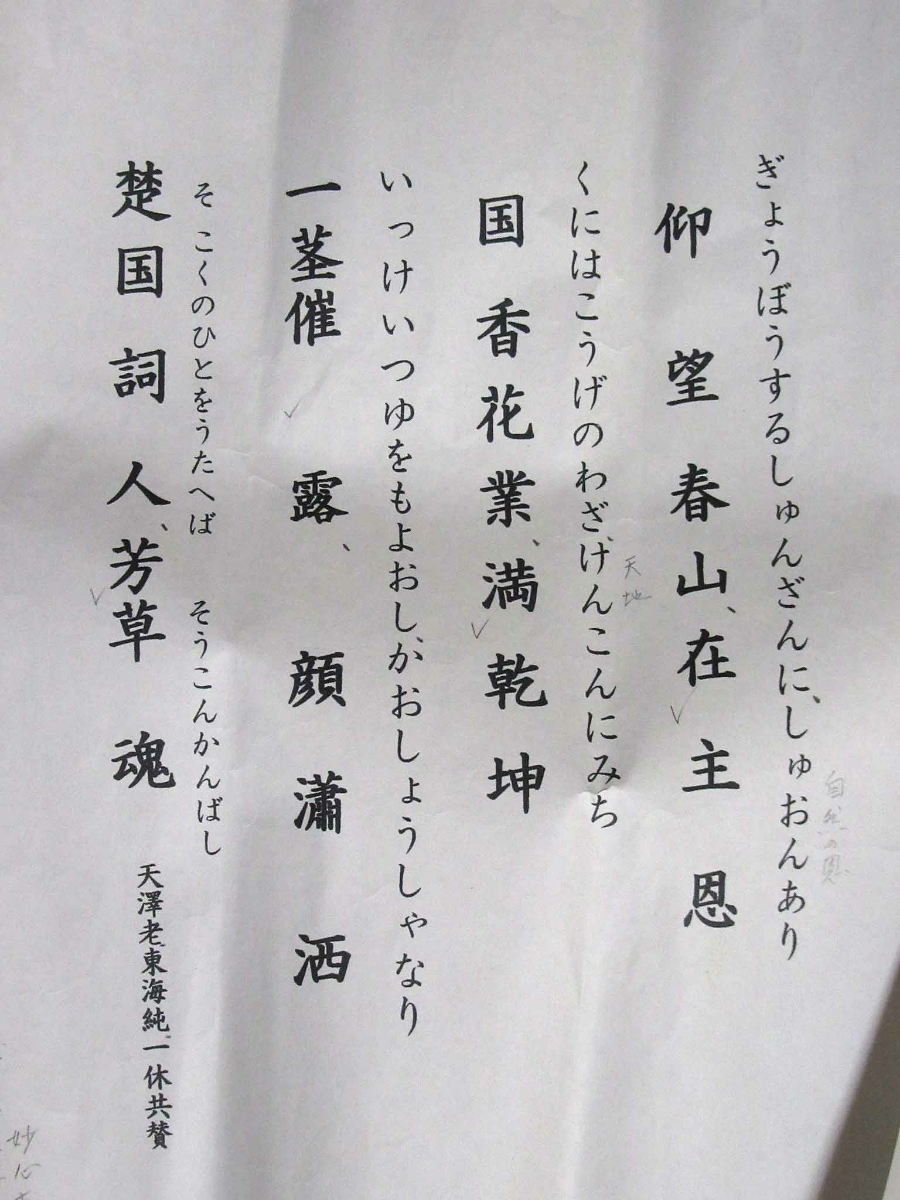 ぎょうぼうするしゅんざんに、しゅおんあり
自然の恩
仰望春山、在主恩
くにはこうげのわざ、けんこんにみち
天地
国香花業、満乾坤
いっけいつゆをもよおし、かおしょうしゃなり
一茎催露、顔瀟洒
そこくのひとをうたへば そうこんかんばし
楚国詞人、芳草魂
天澤老東海純一休共賛
妙心